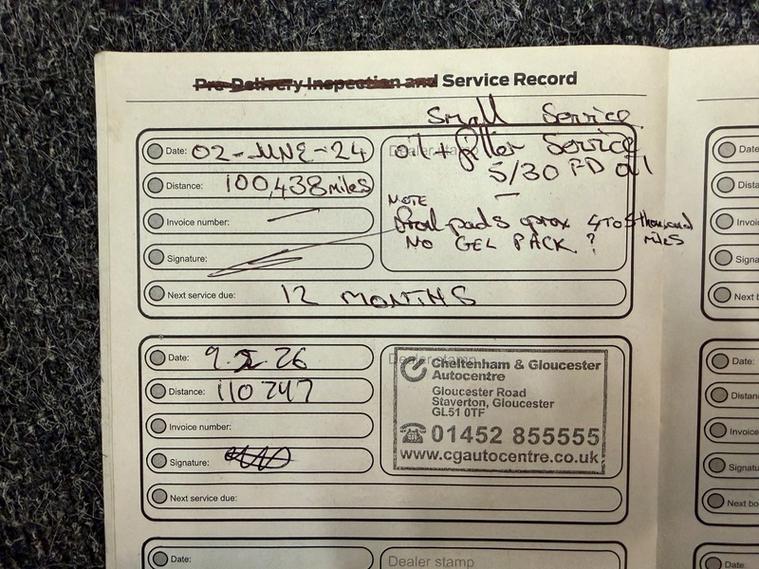 Pre-Delivery Inspection and Service Record
Small Service
Date: 02-JUNE-24
oil + filter Service
Dealer stamp
5/30 FD oil
Distance: 100,438 miles
NOTE
Invoice number:
pads aprox 4 TO 5 thousand
miles
NO GEL PACK ?
Signature:
Next service due: 12 MONTHS
Date: 9. 26
Dealer stamp
Cheltenham & Gloucester
Autocentre
Distance: 110747
Gloucester Road
Staverton, Gloucester
GL51 0TF
Invoice number:
☎ 01452 855555
Signature:
www.cgautocentre.co.uk
Next service due:
Date:
Dealer stamp
Date:
Dista
Invoi
Signa
Next b
Date:
Distan
Invoice
Signatu
Next bo
Date: